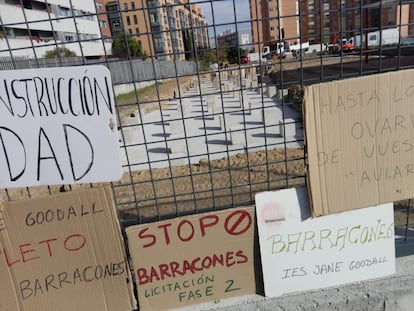 NSTRUCCIÓN
DAD
HASTA LO
OVARI
DE VUES
"AULAR
GOODALL
LETO
BARRACONES
STOP
BARRACONES
LICITACIÓN
FASE 2
BARRACONES
IES JANE GOODALL